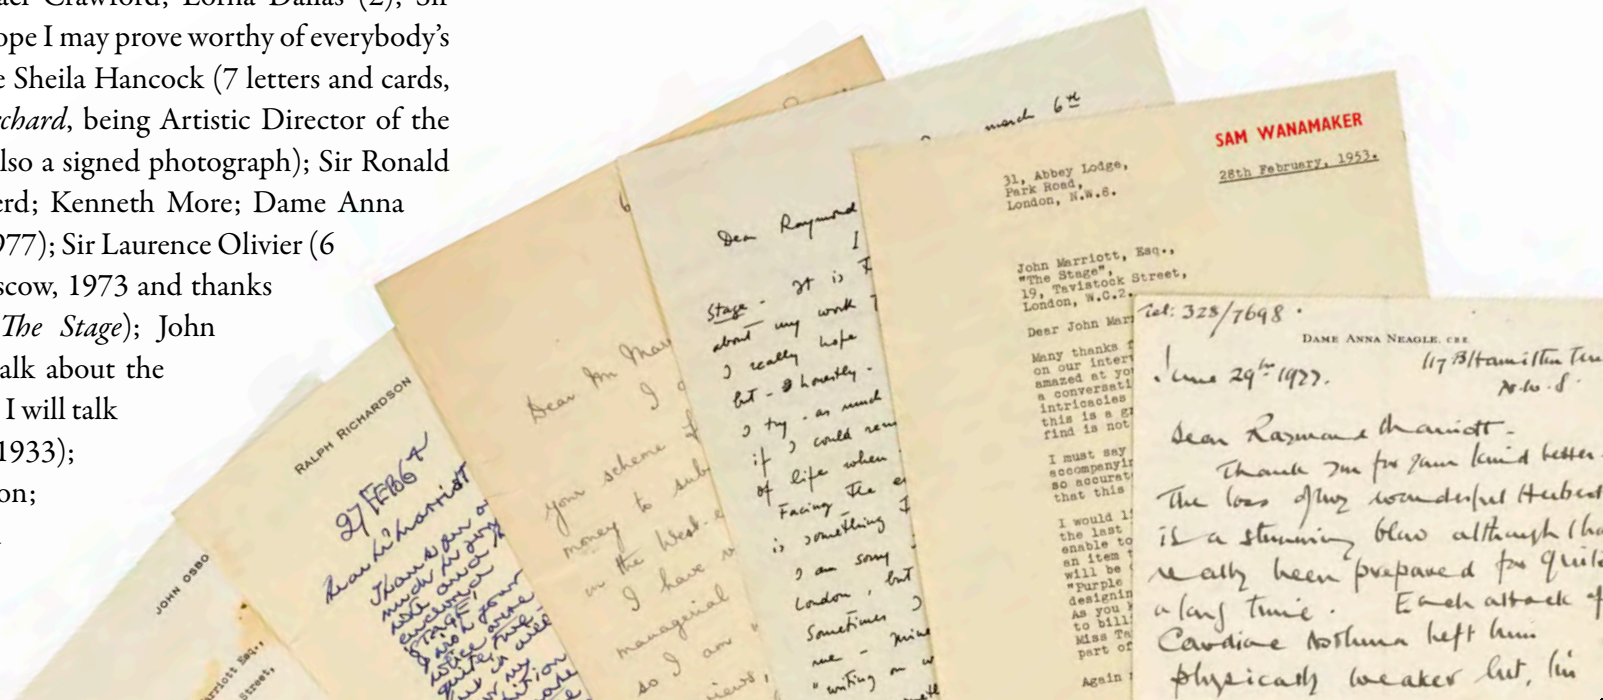 ael Crawford; Lorna Dallas (2); Sir
ope I may prove worthy of everybody's
e Sheila Hancock (7 letters and cards,
rchard, being Artistic Director of the
lso a signed photograph); Sir Ronald
erd; Kenneth More; Dame Anna
977); Sir Laurence Olivier (6
scow, 1973 and thanks
The Stage); John
alk about the
I will talk
1933);
on;
JOHN OSBO
rriott Esq.,
Street,
RALPH RICHARDSON
27 FEB 64
Dear Mr Marriott
Thank you
much
Dear Mr Mar
I
your scheme
money to sub
in the West-e
I have
managerial
so I am
views,
march 6th
Dear Raymond
I
Stage - It is
about my work
I really hope
but - honestly -
I try - as much
if I could rem
of life when
Facing the
is something I
I am sorry
London, but
Sometimes
me - mine
"writing on w
SAM WANAMAKER
28th February, 1953.
31, Abbey Lodge,
Park Road,
London, N.W.8.
John Marriott, Esq.,
"The Stage",
19, Tavistock Street,
London, W.C.2.
Dear John Marr
Many thanks f
on our interv
amazed at yo
a conversati
intricacies
this is a g
find is not
I must say
accompanyin
so accurate
that this
I would li
the last
enable to
an item t
will be
"Purple
designin
As you k
to bill
Miss Ta
part of
Again
Tel: 328/7698.
DAME ANNA NEAGLE, CBE
117B Hamilton Terr
N.W.8.
June 29th 1977.
Dear Raymond Marriott -
Thank you for your kind letter.
The loss of my wonderful Herbert
is a stunning blow although I ha
really been prepared for quite
a long time. Each attack of
Cardiac Asthma left him
physically weaker but, his